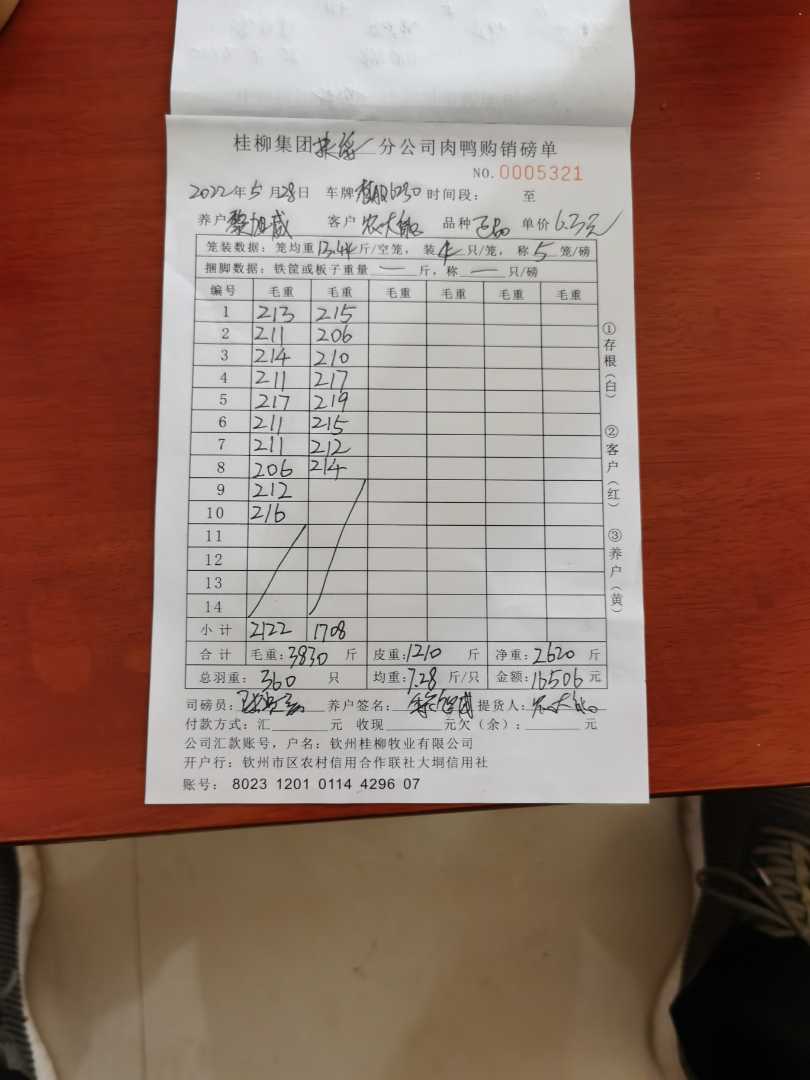 桂柳集团 分公司肉鸭购销磅单
NO.0005321
2022年5月28日 车牌 6230 时间段： 至
养户 黎旭威 客户 农大 品种 正品 单价 6.3元
笼装数据：笼均重13.44斤/空笼，装4只/笼，称5笼/磅
捆脚数据：铁筐或板子重量 — 斤，称 — 只/磅
编号 毛重 毛重 毛重 毛重 毛重 毛重
1 213 215
2 211 206
3 214 210
4 211 217
5 217 219
6 211 215
7 211 212
8 206 214
9 212
10 216
11
12
13
14
小计 2122 1708
合计 毛重：3830 斤 皮重：1210 斤 净重：2620 斤
总羽重：360 只 均重：7.28 斤/只 金额：16506 元
司磅员： 养户签名： 提货人：农大
付款方式：汇 元 收现 元欠（余）： 元
公司汇款账号，户名：钦州桂柳牧业有限公司
开户行：钦州市区农村信用合作联社大垌信用社
账号：8023 1201 0114 4296 07
①存根（白）
②客户（红）
③养户（黄）